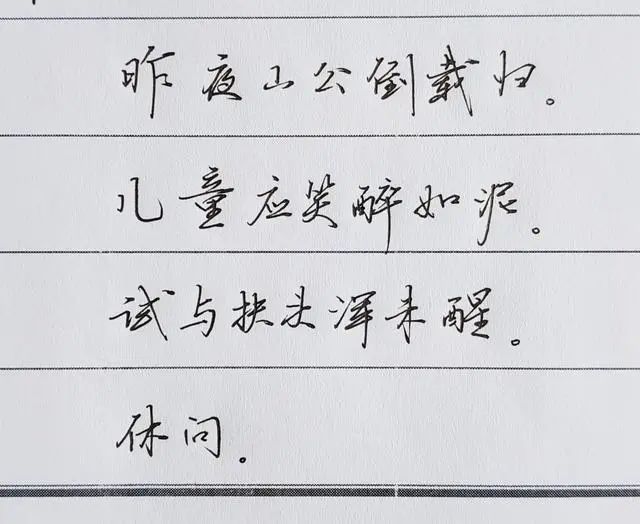 昨夜山公倒载归。
儿童应笑醉如泥。
试与扶头浑未醒。
休问。